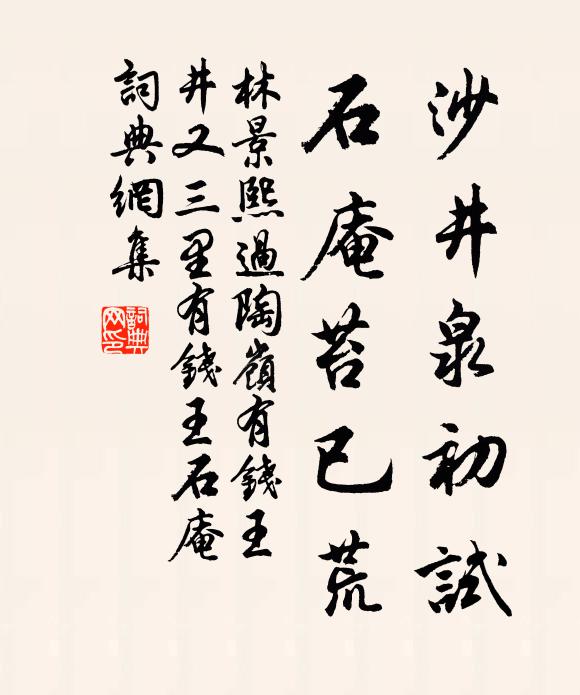 沙井泉初試
石庵苔已荒
林景熙過陶嶺有錢王
井又三里有錢王石庵
詞典網集
詞典
网印